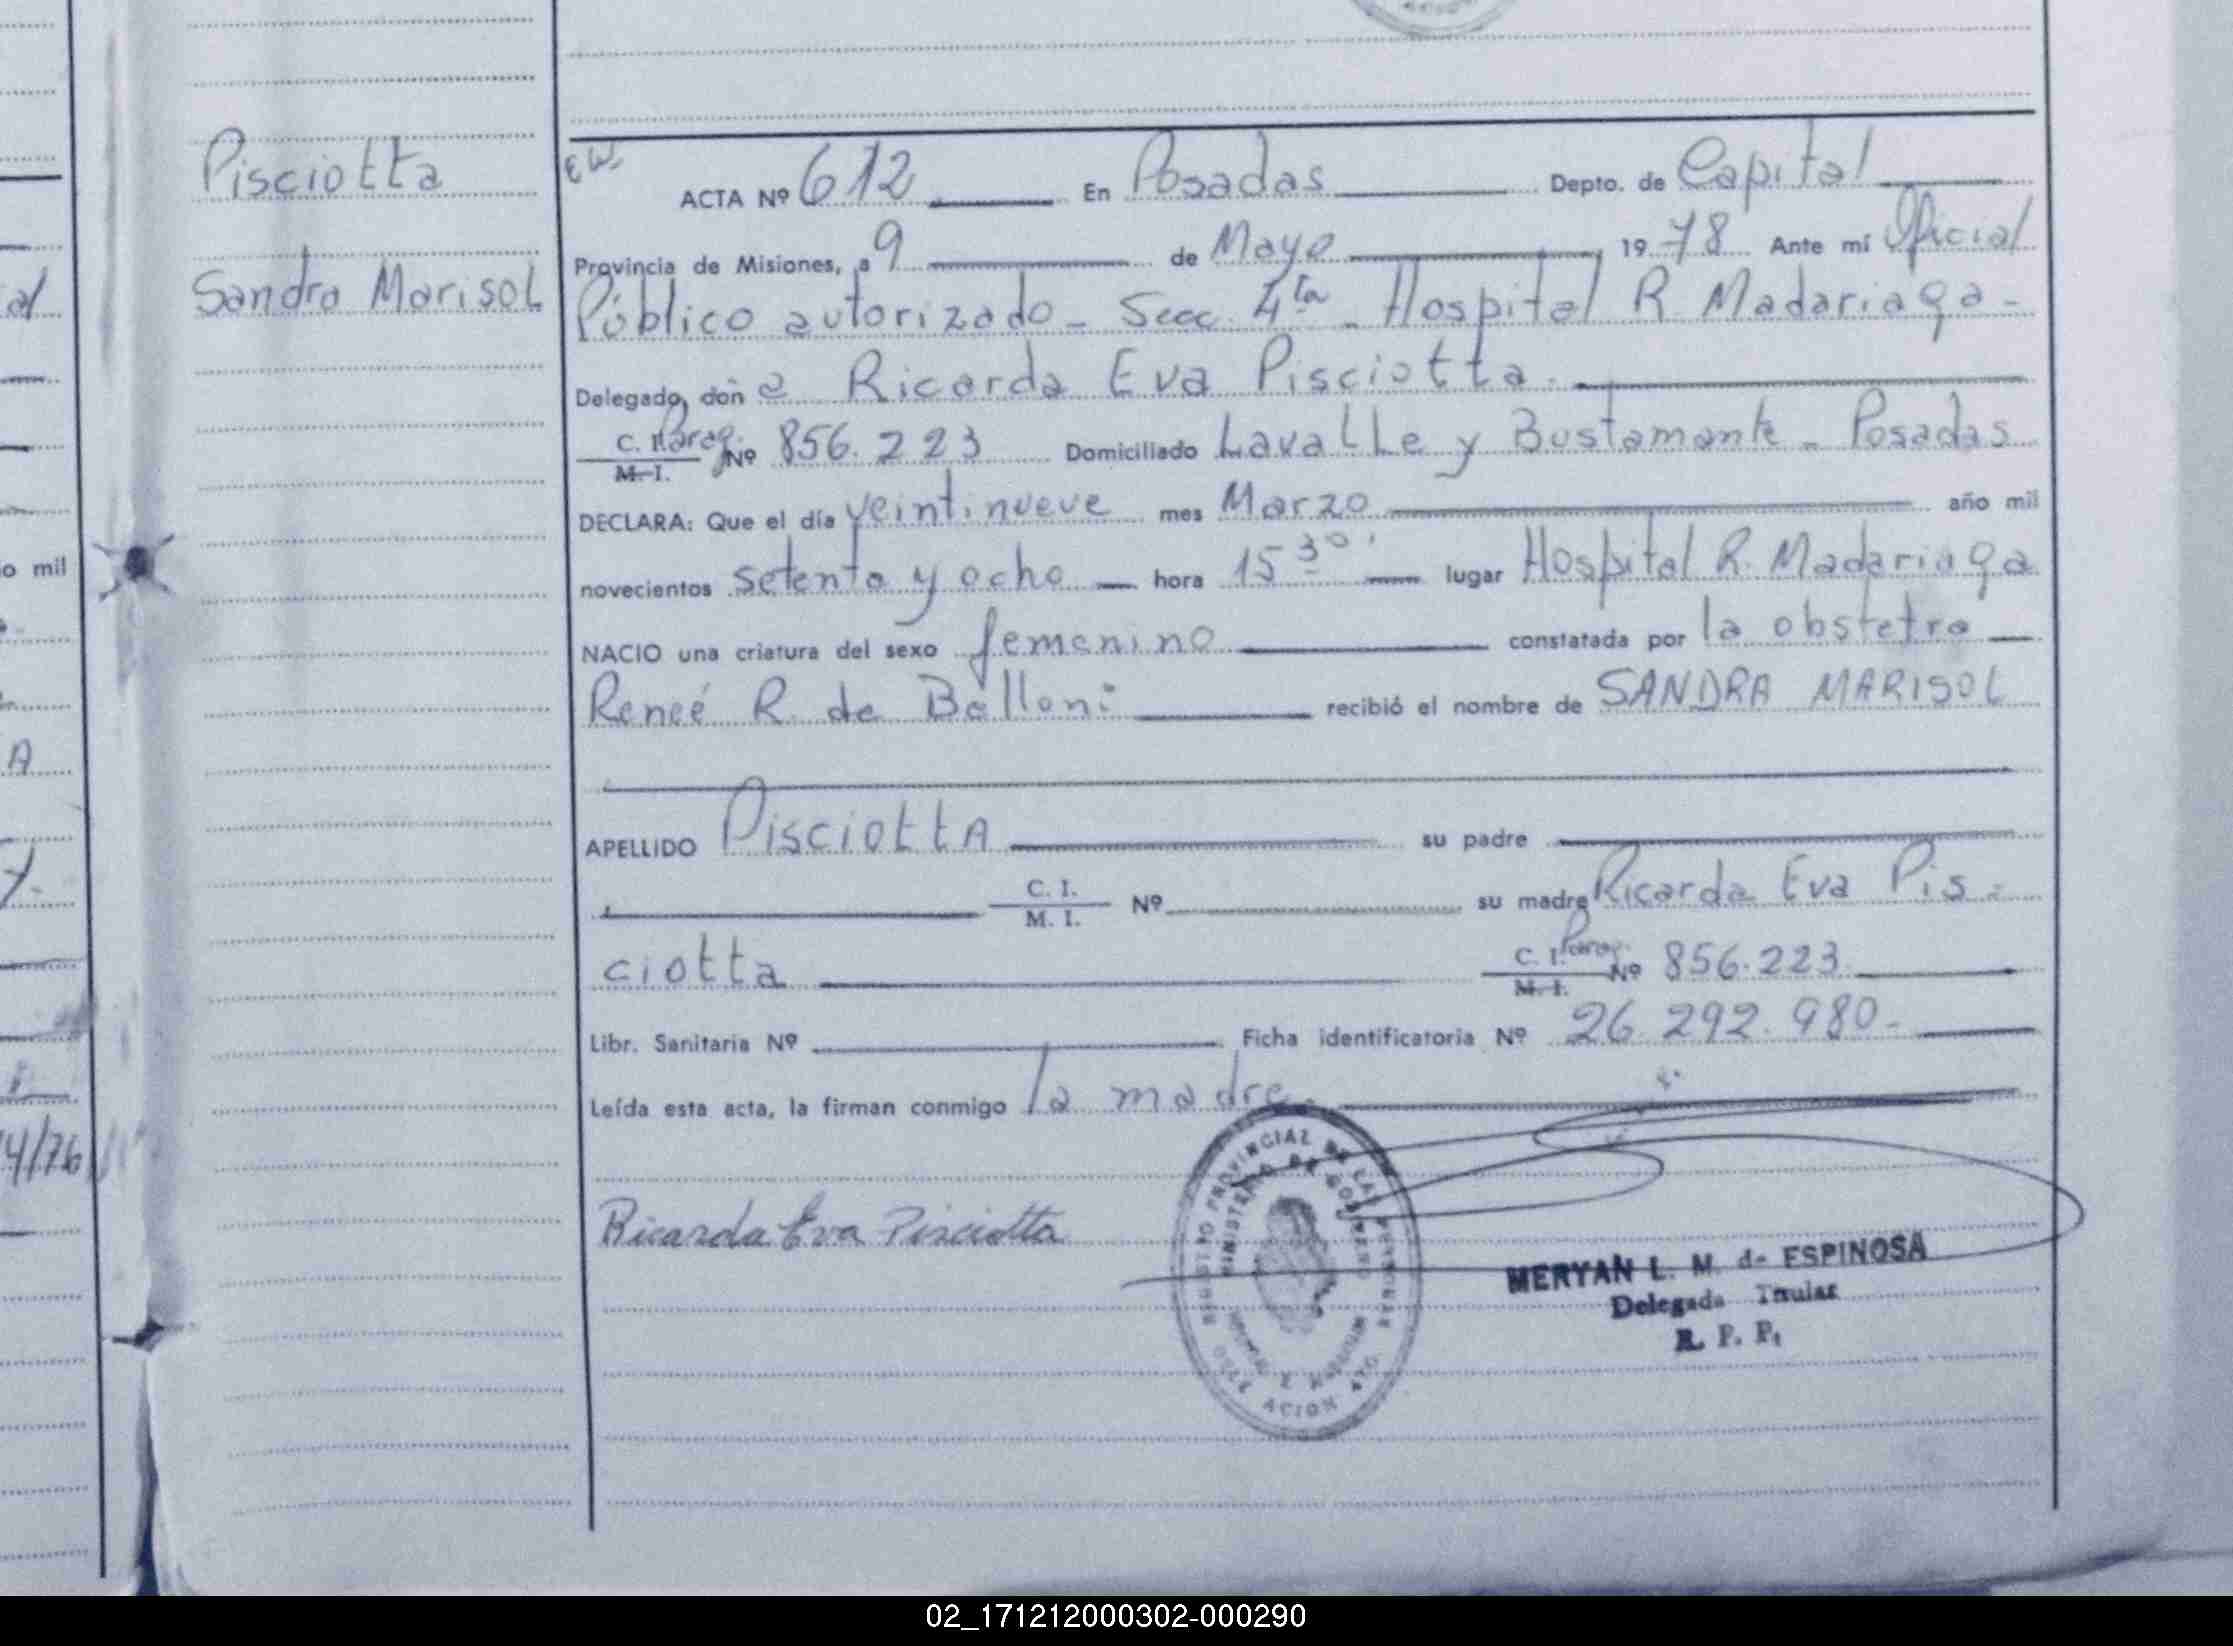 Pisciotta
Sandra Marisol
EW
ACTA Nº 612 En Posadas Depto. de Capital
Provincia de Misiones, a 9 de Mayo 1978 Ante mí Oficial
Público autorizado - Secc. 4ta - Hospital R. Madariaga -
Delegado, don a Ricarda Eva Pisciotta.
C. I. Parag. Nº 856.223 Domiciliado Lavalle y Bustamante - Posadas
M. I.
DECLARA: Que el día veintinueve mes Marzo año mil
novecientos setenta y ocho hora 15 30' lugar Hospital R. Madariaga
NACIO una criatura del sexo femenino constatada por la obstetra
Reneé R. de Balloni recibió el nombre de SANDRA MARISOL
APELLIDO PisciottA su padre
C. I.
M. I. Nº su madre Ricarda Eva Pis-
ciotta C. I. Parag. Nº 856.223
M. I.
Libr. Sanitaria Nº Ficha identificatoria Nº 26.292.980-
Leída esta acta, la firman conmigo la madre.
Ricarda Eva Pisciotta
REGISTRO PROVINCIAL DE LAS PERSONAS
MINISTERIO DE GOBIERNO
MERYAN L. M. de ESPINOSA
Delegada Titular
R. P. P.
al
o mil
A
y.
4/76
02_171212000302-000290